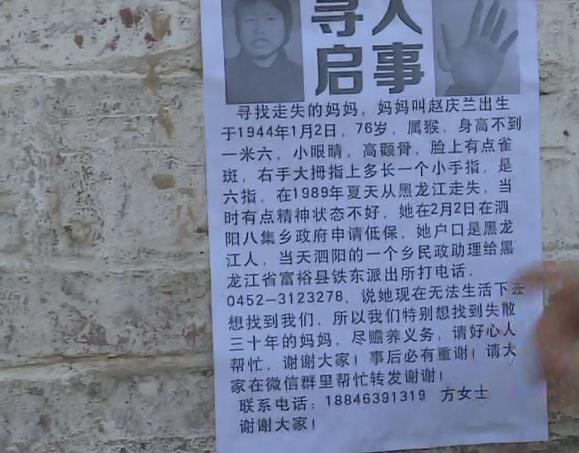 寻人
启事
寻找走失的妈妈，妈妈叫赵庆兰出生
于1944年1月2日，76岁，属猴，身高不到
一米六，小眼睛，高颧骨，脸上有点雀
斑，右手大拇指上多长一个小手指，是
六指，在1989年夏天从黑龙江走失，当
时有点精神状态不好，她在2月2日在泗
阳八集乡政府申请低保，她户口是黑龙
江人，当天泗阳的一个乡民政助理给黑
龙江省富裕县铁东派出所打电话．
0452-3123278，说她现在无法生活下去
想找到我们，所以我们特别想找到失散
三十年的妈妈，尽赡养义务，请好心人
帮忙，谢谢大家！事后必有重谢！请大
家在微信群里帮忙转发谢谢！
联系电话：18846391319 方女士
谢谢大家！